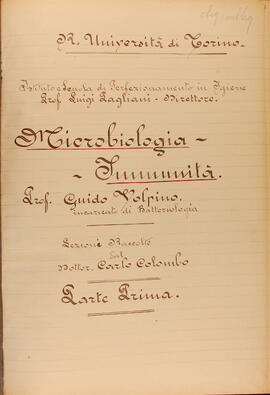 R. Università di Torino.
Istituto e Scuola di Perfezionamento in Igiene
Prof. Luigi Pagliani - Direttore.
Microbiologia -
- Immunità.
Prof. Guido Volpino.
incaricato di Batteriologia
Lezioni Raccolte
dal
Dottor. Carlo Colombo
Parte Prima.